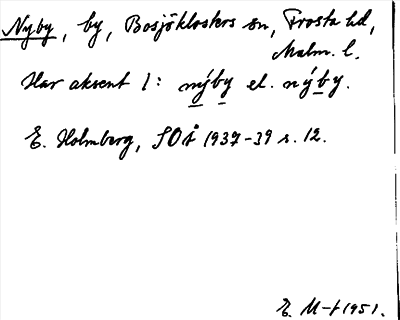 Nyby, by, Bosjöklosters sn, Frosta hd,
Malm. l.
Har aksent 1: nýby el. nýby.
E. Holmberg, SOÅ 1937-39 s. 12.
E. M-f 1951.